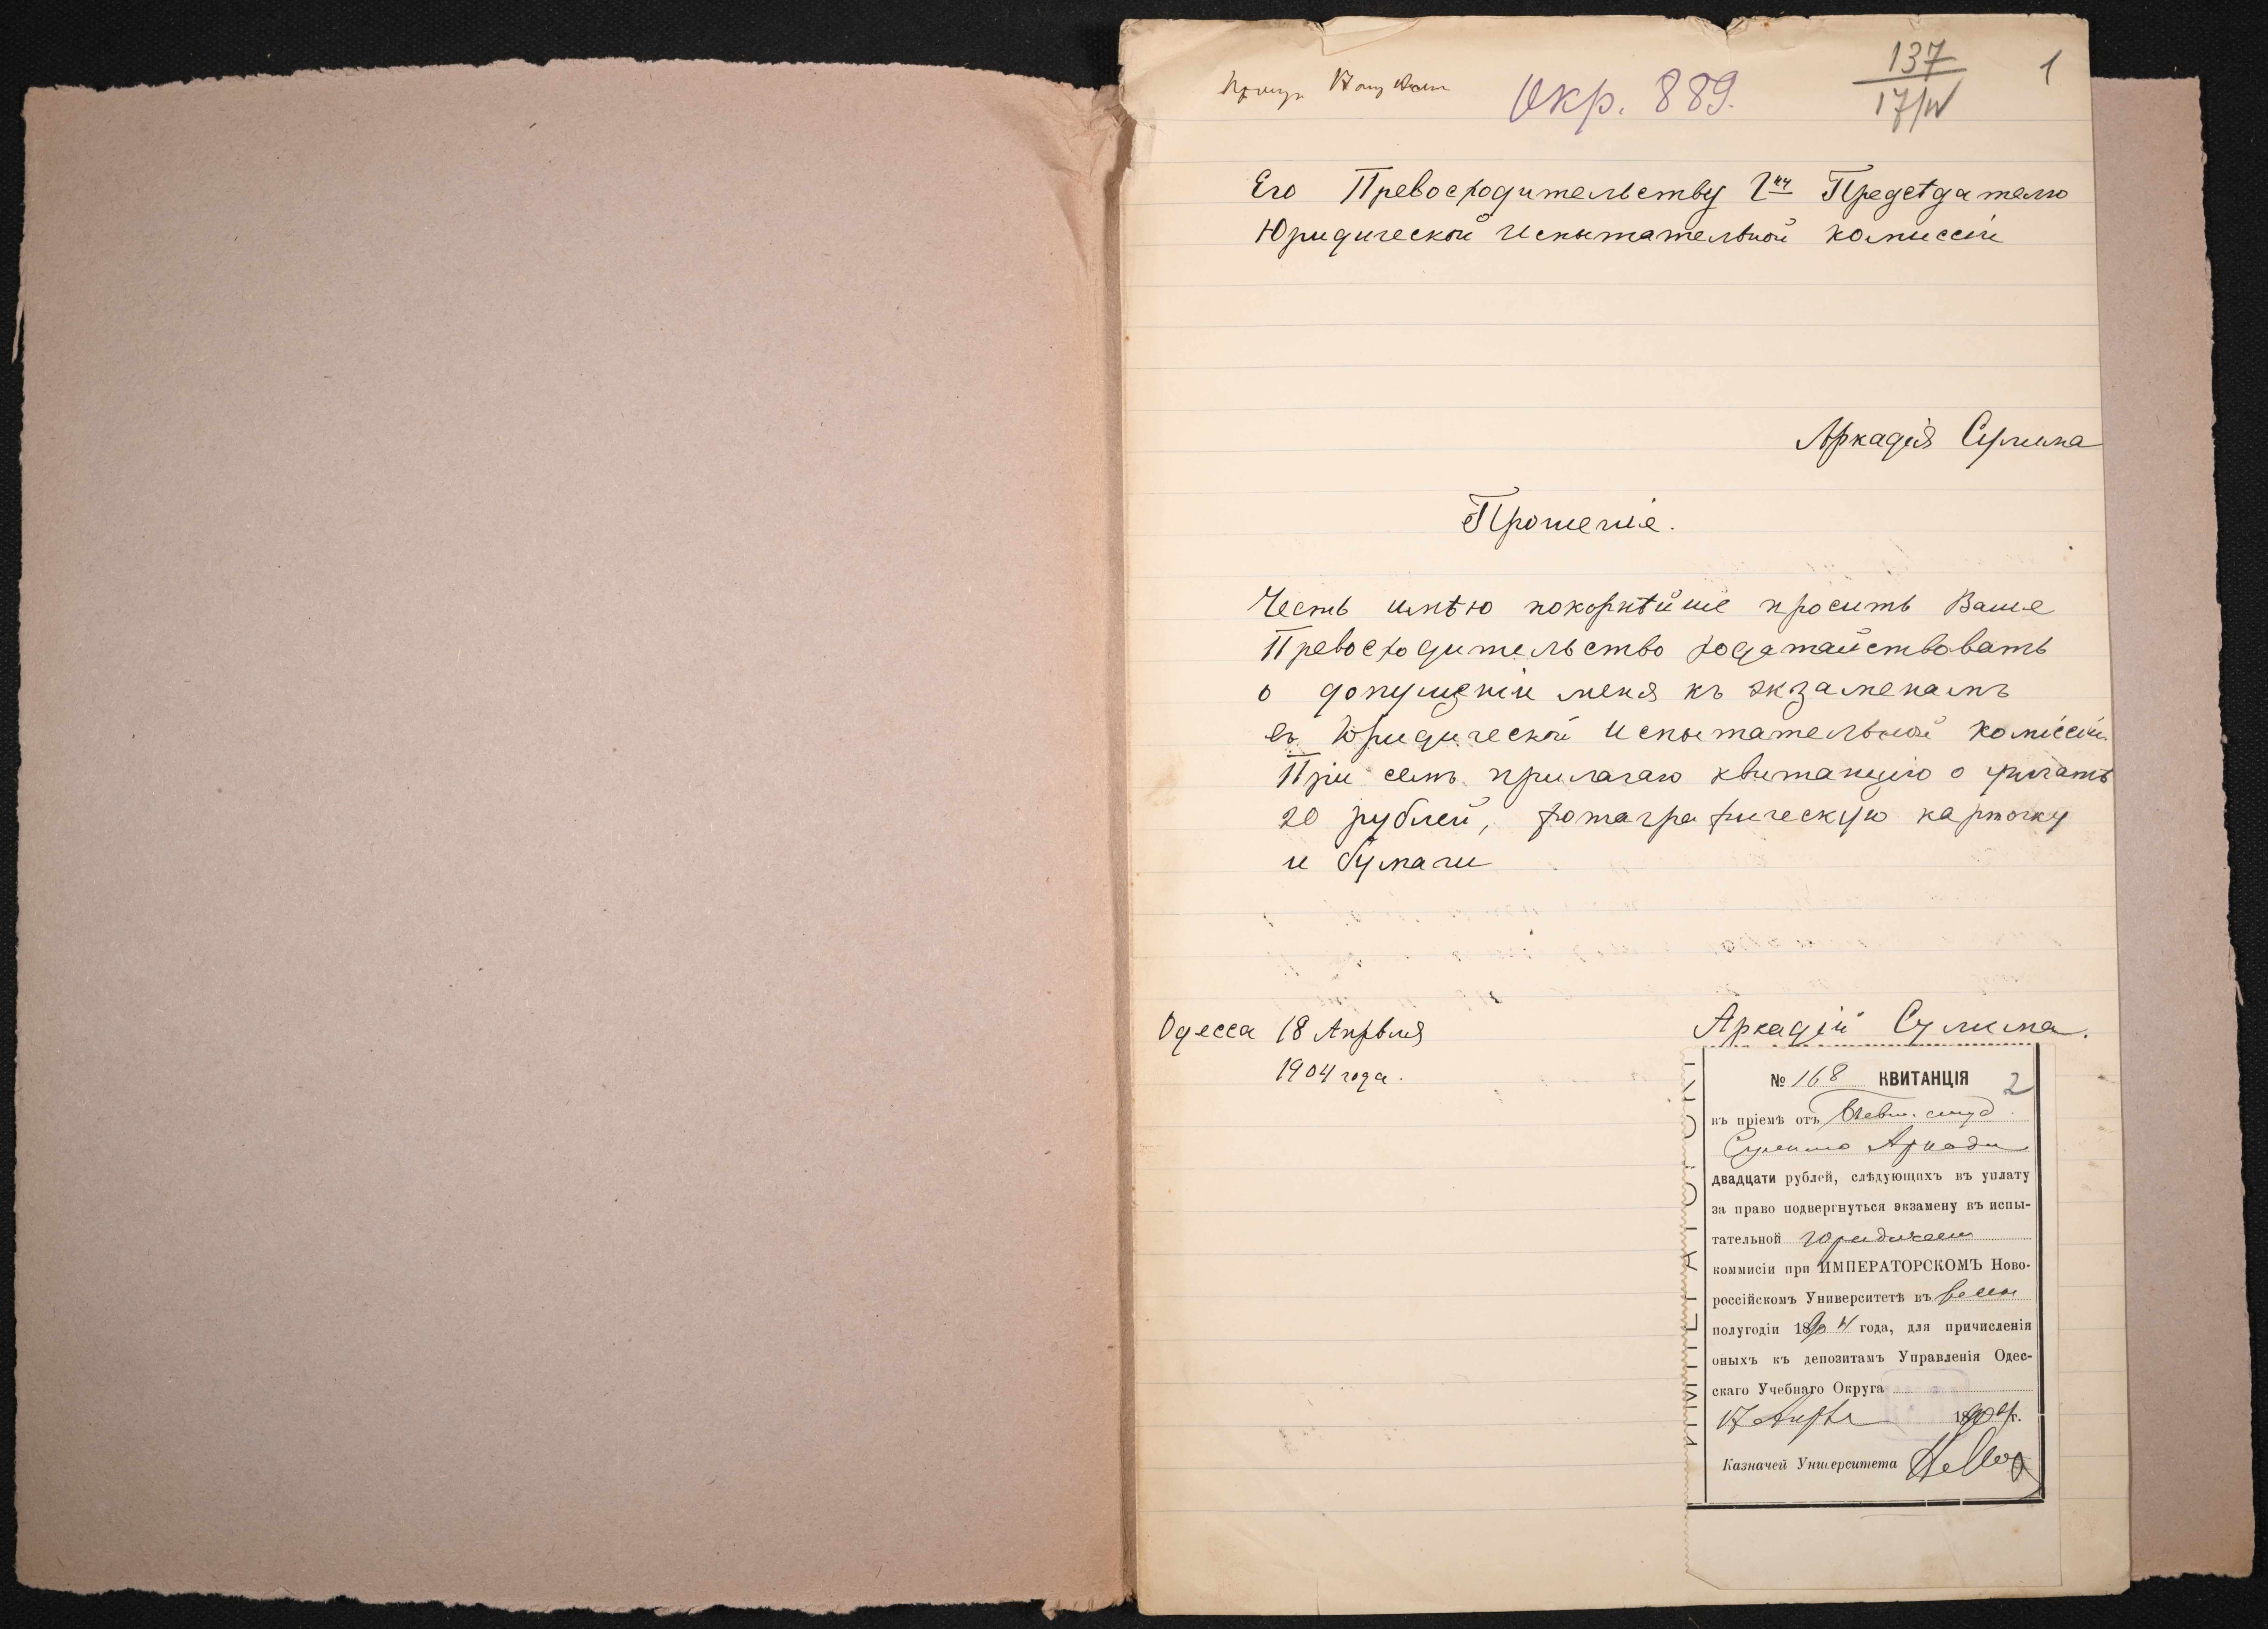 Окр. 889.
137
17/IV
1
Его Превосходительству Гну Предсѣдателю
Юридической Испытательной Комиссіи
Аркадія Сулима
Прошеніе.
Честь имѣю покорнѣйше просить Ваше
Превосходительство ходатайствовать
о допущеніи меня къ экзаменамъ
въ Юридической Испытательной Коміссіи.
При семъ прилагаю квитанцію о уплатѣ
20 рублей, фотаграфическую карточку
и бумаги
Одесса 18 Апрѣля
1904 года.
Аркадій Сулима.
№ 168 КВИТАНЦІЯ 2
къ пріемѣ отъ бывш. студ.
Сулима Аркади
двадцати рублей, слѣдующихъ въ уплату
за право подвергнуться экзамену въ испы-
тательной юридическ
коммисіи при ИМПЕРАТОРСКОМЪ Ново-
россійскомъ Университетѣ въ весен
полугодіи 1904 года, для причисленія
оныхъ къ депозитамъ Управленія Одес-
скаго Учебнаго Округа
17 Апрѣ 1904 г.
Казначей Университета